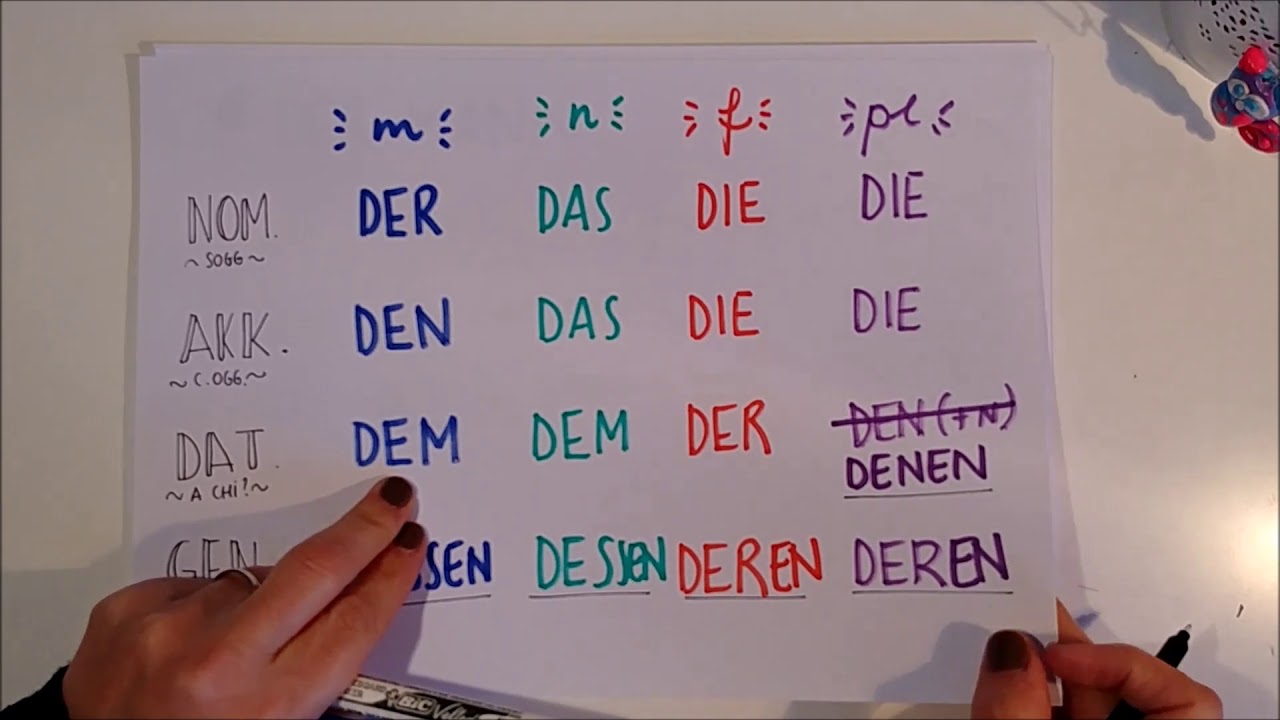 m n f pl
NOM. DER DAS DIE DIE
~ SOGG ~
AKK. DEN DAS DIE DIE
~ C.OGG. ~
DAT. DEM DEM DER DEN (+N)
~ A CHI? ~ DENEN
GEN DESSEN DEREN DEREN
BIC